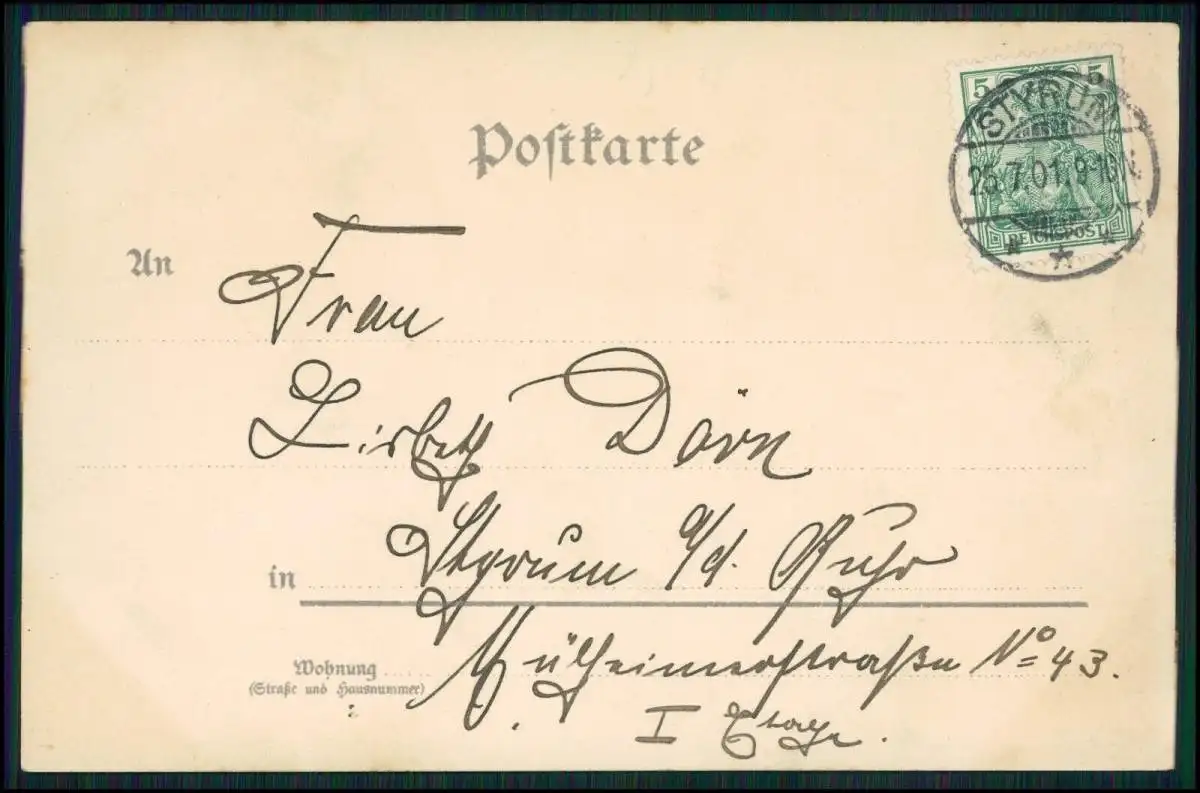 Postkarte
5 5
STYRUM
25.7.01.9-10N.
REICHSPOST
An
Frau
Lisbeth Dörn
in Styrum a/d. Ruhr
Wohnung
(Straße und Hausnummer)
Mülheimerstraße No 43.
I Etage.